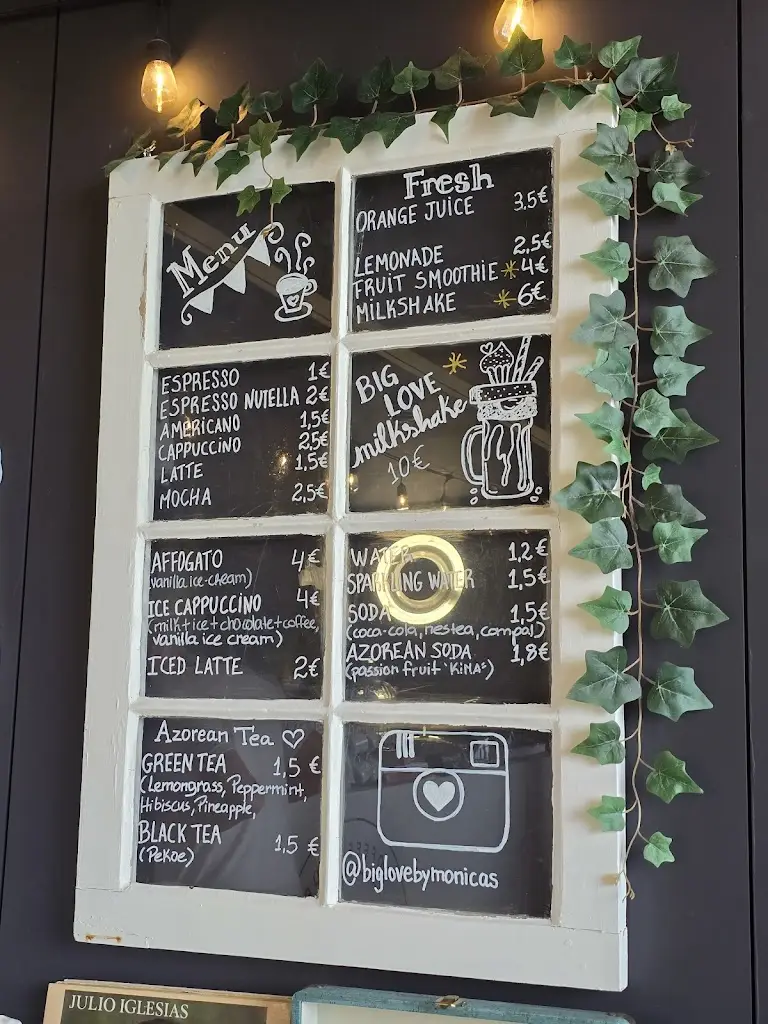 Menu
Fresh
ORANGE JUICE 3.5€
LEMONADE 2,5€
FRUIT SMOOTHIE 4€
MILKSHAKE 6€
ESPRESSO 1€
ESPRESSO NUTELLA 2€
AMERICANO 1,5€
CAPPUCCINO 2,5€
LATTE 1,5€
MOCHA 2,5€
BIG
LOVE
milkshake
10€
AFFOGATO 4€
(vanilla ice-cream)
ICE CAPPUCCINO 4€
(milk+ice+chocolate+coffee,
vanilla ice cream)
ICED LATTE 2€
WATER 1,2€
SPARKLING WATER 1,5€
SODA 1,5€
(coca-cola, nestea, compal)
AZOREAN SODA 1,8€
(passion fruit "KIMA")
Azorean Tea ♡
GREEN TEA 1,5 €
(Lemongrass, Peppermint,
Hibiscus, Pineapple,
BLACK TEA 1,5 €
(Pekoe)
@biglovebymonicas
JULIO IGLESIAS